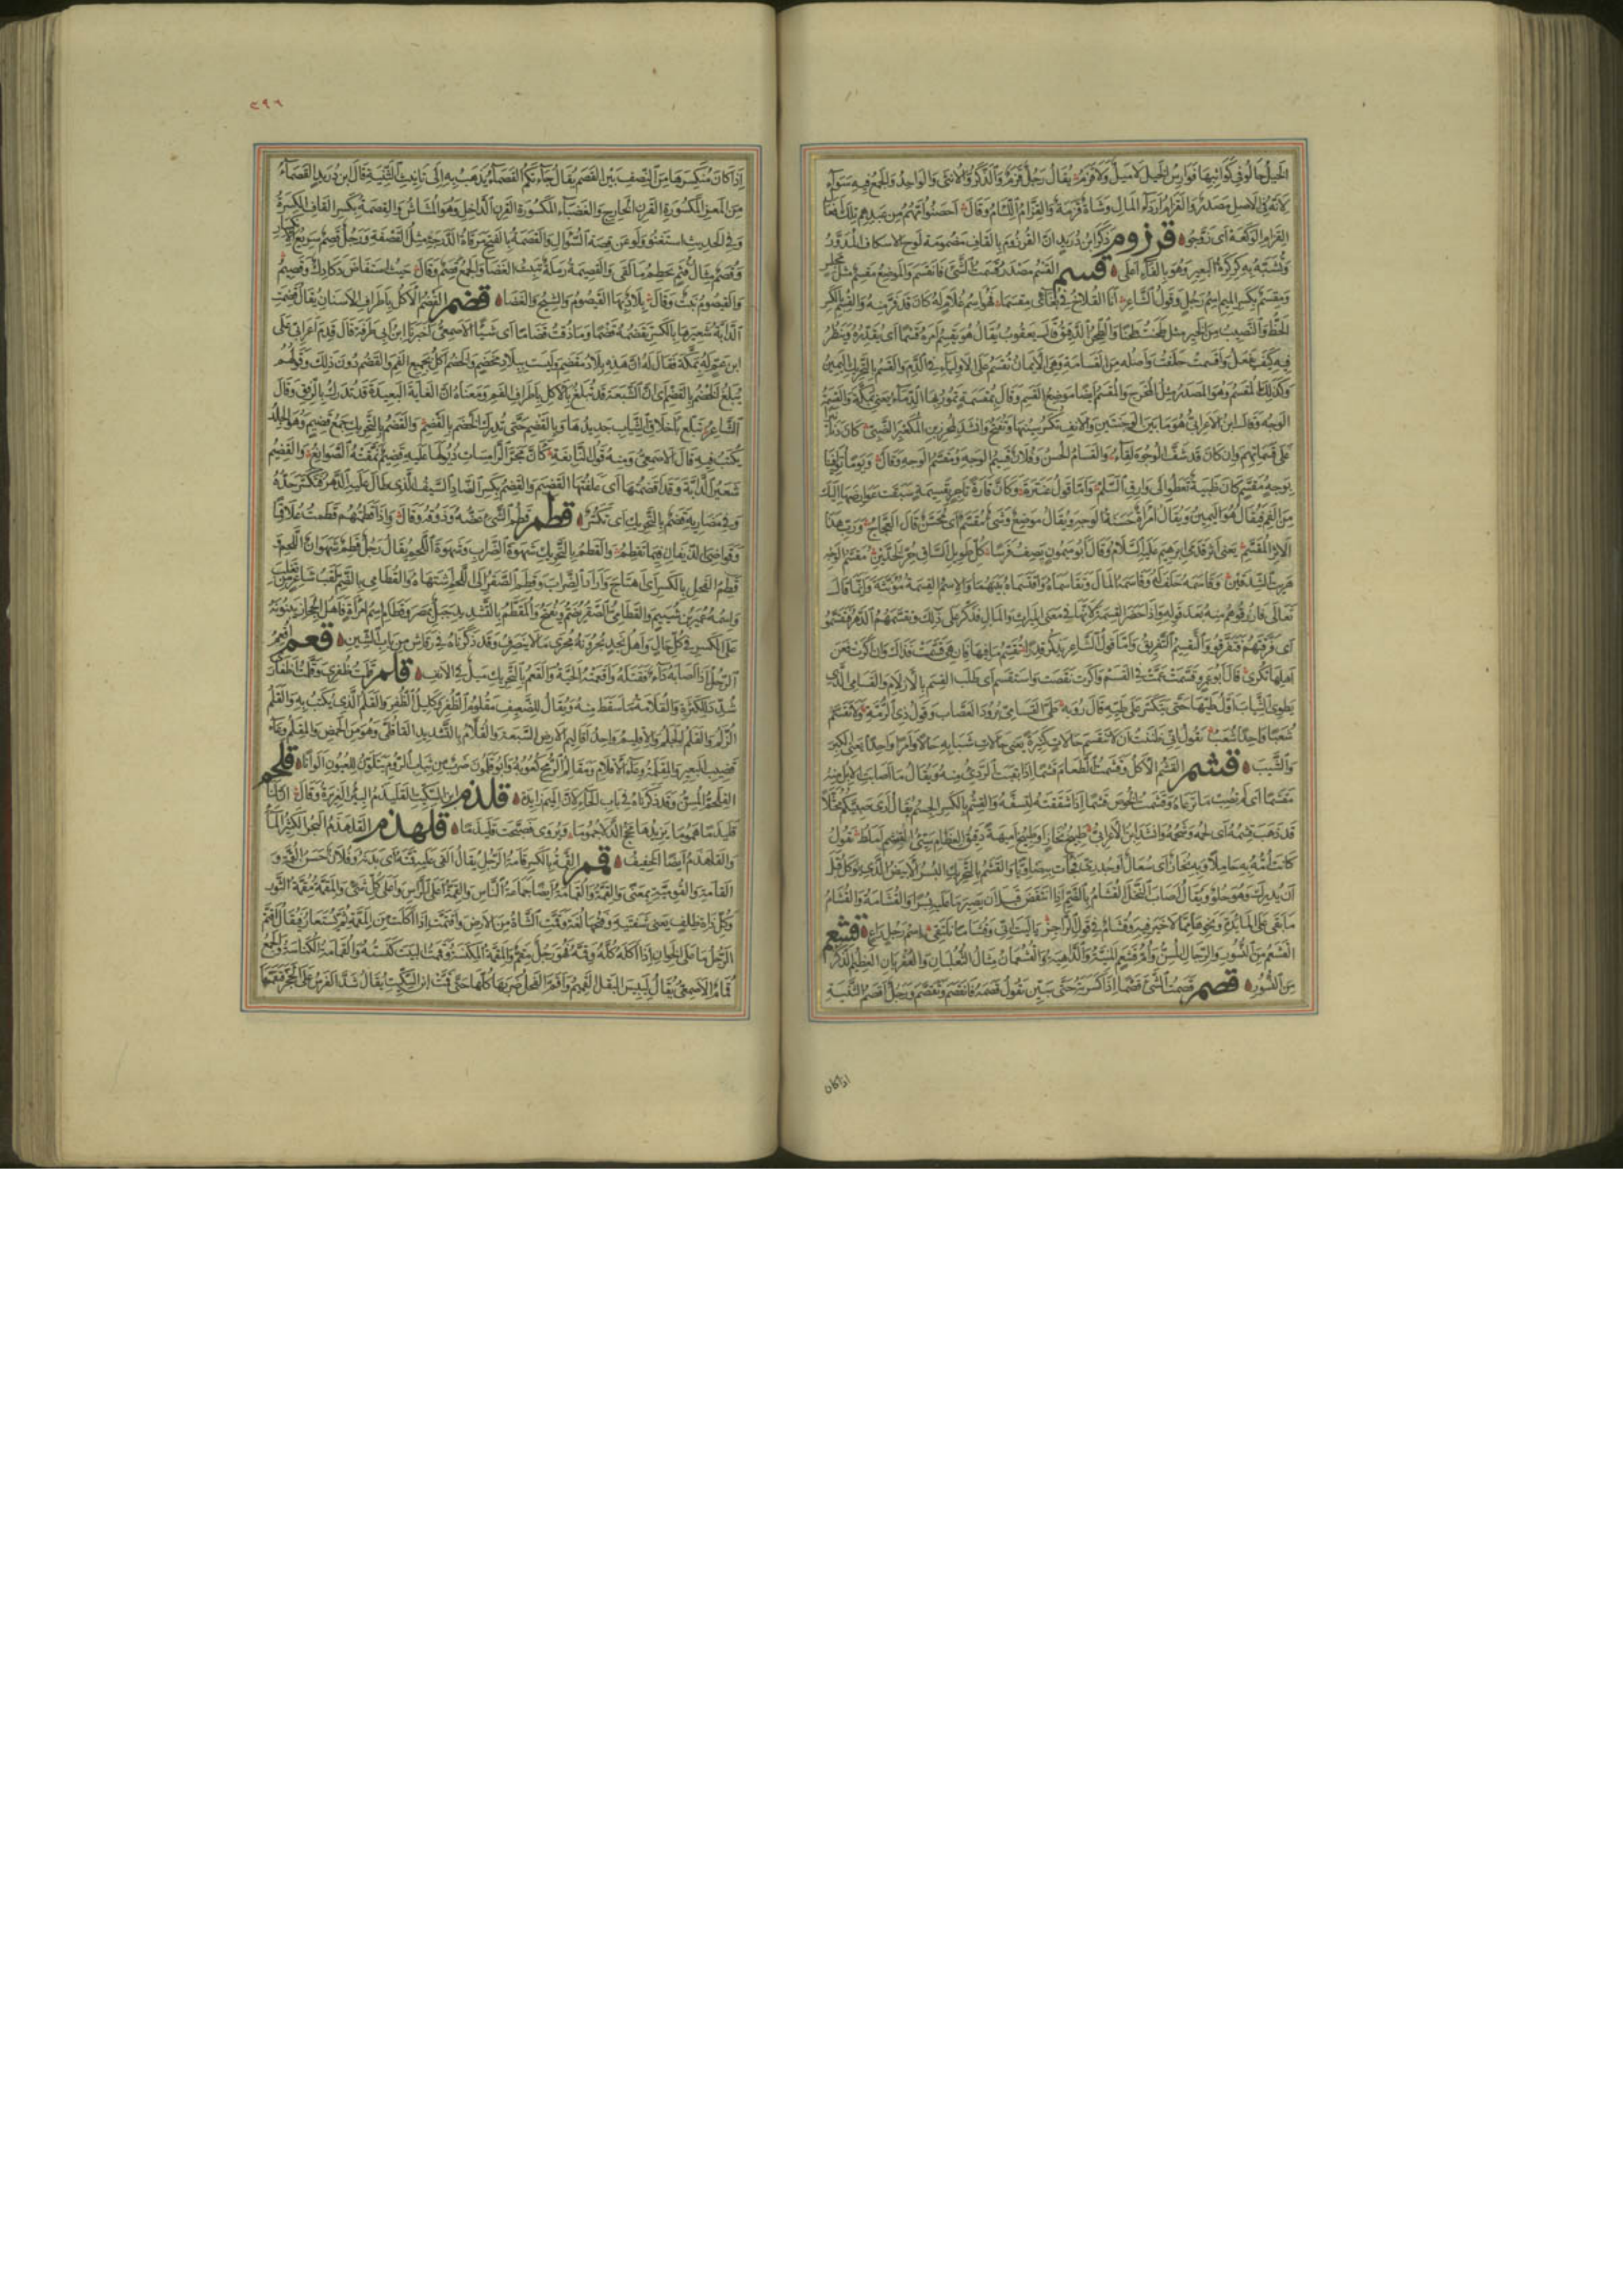 الخيل جالوا في كواثبها فوارس الخيل لا ميل ولا قزم يقال رجل قزم والذكر والانثى والواحد والجمع فيه سواء
لانه في الاصل مصدر والقزام رذال المال وشاة قزمة والقزام اللئام وقال احصنوا امهم من عبدهم تلك افعال
القزام الوكعة اى زوجوا قرزوم ذكر ابن دريد ان القرزوم بالقاف مضمومة لوح الاسكاف المدور
وتشبه به كركرة البعير وهو بالفاء اعلى قسم القسم مصدر قسمت الشئ فانقسم والموضع مقسم مثل مجلس
ومقسم بكسر الميم اسم رجل وقول الشاعر انا القلاخ في بغائى مقسما فهو اسم غلام له كان قد فر منه والقسم بالكسر
الحظ والنصيب من الخير مثل طحنت طحنا والطحن الدقيق قال يعقوب يقال هو يقسم امره قسما اى يقدره وينظر
فيه كيف يفعل واقسمت حلفت واصله من القسامة وهي الايمان تقسم على الاولياء في الدم والقسم بالتحريك اليمين
وكذلك المقسم وهو المصدر مثل المخرج والمقسم ايضا موضع القسم وقال بمقسمة تمور بها الدماء يعني بمكة والقسمة
الوجه وقال ابن الاعرابي هو ما بين الوجنتين والانف تكسر سينها وتفتح وانشد لمحرز بن المكعبر الضبي كان دنانيرا
على قسماتهم وان كان قد شف الوجوه لقاء والقسام الحسن وفلان قسيم الوجه ومقسم الوجه وقال ويوما توافينا
بوجه مقسم كان ظبية تعطو الى وارق السلم واما قول عنترة وكان فارة تاجر بقسيمة سبقت عوارضها اليك
من الفم فيقال هو اليمين ويقال امراة حسنة الوجه ويقال موضع وشئ مقسم اى محسن قال العجاج ورب هذا
الاثر المقسم يعني اثر قدمي ابرهيم عليه السلام وقال ابو ميمون يصف فرسا كل طويل الساق حر الخدين مقسم الوجه
هريت الشدقين وقاسمه حلف له وقاسمه المال وتقاسماه واقتسماه بينهما والاسم القسمة مؤنثة وانما قال
تعالى فارزقوهم منه بعد قوله واذا حضر القسمة لانها في معنى الميراث والمال فذكر على ذلك وتقسمهم الدهر فتقسموا
اى فرقهم فتفرقوا والتقسيم التفريق واما قول الشاعر يذكر قدرا تقسم ما فيها فان هي قسمت فذاك وان اكرت فعن
اهلها تكري قال ابو عمرو قسمت عمت في القسم واكرت نقصت واستقسم اى طلب القسم بالازلام والقسامي الذي
يطوي الثياب اول طيها حتى يتكسر على طيه قال رؤبة طى القسامي برود العصاب وقول ذي الرمة ولا تقسم
شعبا واحدا شعب يقول اني ظننت ان لا تنقسم حالات كثيرة يعني حالات شبابه حالا وامرا واحدا يعني الكبر
والشيب قشم القشم الاكل وقشمت الطعام قشما اذا نفيت الردئ منه ويقال ما اصابت الابل منه
مقشما اى لم تصب ما ترعاه وقشمت الخوص قشما اذا شققته لتسفه والقشم بالكسر الجسم يقال
قد ذهب قشمه اى لحمه وشحمه وانشد ابن الاعرابي طبيخ نحاز او طبيخ اميهة دقيق العظام سيئ القشم املط يقول
كانت امه به حاملا وبها نحاز اى سعال او جدري فجاءت به ضاويا والقشم بالتحريك البسر الابيض الذي يؤكل قبل
ان يدرك وهو حلو ويقال اصاب النخل القشام بالضم اذا انتفض قبل ان يصير ما عليه بسرا والقشامة والقشام
ما بقى على المائدة ونحوها مما لا خير فيه وقشام في قول الراجز يا ليت اني وقشاما نلتقي اسم رجل راع قشعم
القشعم من النسور والرجال المسن وام قشعم المنية والداهية والقشعمان مثال الثعلبان والعقربان العظيم الذكر
من النسور قصم قصمت الشئ قصما اذا كسرته حتى يبين تقول قصمه فانقصم وتقصم ورجل اقصم الثنية
اذا كان
٣٩٦
اذا كان منكسرها من النصف بين القصم يقال جاءتكم القصماء يذهب به الى تانيث الثنية قال ابن دريد القصماء
من المعز المكسورة القرن الخارج والعضباء المكسورة القرن الداخل وهو المشاش والقصمة بكسر القاف الكسرة
وفي الحديث استغنوا ولو عن قصمة السواك والقصمة بالفتح مرقاة الدرجة مثل القصفة ورجل قصم سريع الانكسار
وقصم مثال قثم يحطم ما لقى والقصيمة رملة تنبت الغضا والجمع قصيم وقال حيث استفاض دكادك وقصيم
والقيصوم نبت وقال بلاد بها القيصوم والشيح والغضا قضم القضم الاكل باطراف الاسنان يقال قضمت
الدابة شعيرها بالكسر تقضمه قضما وما ذقت قضاما اى شيئا الاصمعي اخبرنا ابن ابي طرفة قال قدم اعرابي على
ابن عم له بمكة فقال له ان هذه بلاد مقضم وليست ببلاد مخضم والخضم اكل بجميع الفم والقضم دون ذلك وقولهم
يبلغ الخضم بالقضم اى ان الشبعة قد تبلغ بالاكل باطراف الفم ومعناه ان الغاية البعيدة قد تدرك بالرفق وقال
الشاعر تبلغ باخلاق الثياب جديدها وبالقضم حتى تدرك الخضم بالقضم والقضم بالتحريك جمع قضيم وهو الجلد
يكتب فيه قال الاصمعي ومنه قول النابغة كان مجر الرامسات ذيولها عليه قضيم نمقته الصوانع والقضيم
شعير الدابة وقد اقضمتها اى علفتها القضيم والقضم بكسر الضاد السيف الذي طال عليه الدهر فتكسر حده
وفي مضاربه قضم بالتحريك اى تكسر قطم قطم الشئ عضه وذوقه وقال واذا قطمتهم قطمت علاقما
وقواضي الذيفان فيما تقطم والقطم بالتحريك شهوة الضراب وشهوة اللحم يقال رجل قطم شهوان اللحم
قطم الفحل بالكسر اى اهتاج واراد الضراب وقطم الصقر الى اللحم اشتهاه والقطامي بالضم لقب شاعر من تغلب
واسمه عمير بن شييم والقطامي الصقر يضم ويفتح والمقطم بالتشديد جبل بمصر وقطام اسم امراة واهل الحجاز يبنونه
على الكسر في كل حال واهل نجد يجرونه مجرى ما لا ينصرف وقد ذكرناه في رقاش من باب الشين قعم اقعم
الرجل اذا اصابه داء فقتله واقعمته الحية والقعم بالتحريك ميل في الانف قلم قلمت ظفري وقلمت اظفاري
شدد للكثرة والقلامة ما سقط منه ويقال للضعيف مقلوم الظفر وكليل الظفر والقلم الذي يكتب به والقلم
الزلم والقلم الجلم والاقليم واحد اقاليم الارض السبعة والقلام بالتشديد القاقلى وهو من الحمض والمقلم وعاء
قضيب البعير والمقلمة وعاء الاقلام ومقالم الرمح كعوبه وابو قلمون ضرب من ثياب الروم يتلون للعيون الوانا قلحم
القلحم المسن وقد ذكرناه في باب الحاء لان الميم زائدة قلذم ابن السكيت القليذم البئر الغزيرة وقال ان لنا
قليذما هموما يزيدها مخج الدلا جموما ويروى قد صبحت قليذما قلهذم القلهذم البحر الكثير الماء
والقلهذم ايضا الخفيف قمم القمة بالكسر قامة الرجل يقال القى عليه قمته اى بدنه وفلان حسن القمة و
القامة والقومية بمعنى والقمة والقمامة ايضا جماعة الناس والقمة اعلى الراس واعلى كل شئ والمقمة مقمة الثور
وكل ذات ظلف يعني شفتيه وفتحها لغة وقمت الشاة من الارض واقتمت اذا اكلت من المقمة ثم يستعار فيقال اقتم
الرجل ما على الخوان اذا اكله كله وقمه فهو رجل مقم والمقمة المكنسة وقممت البيت كنسته والقمامة الكناسة والجمع
قمام الاصمعي يقال ليبيس البقل القميم واقم الفحل الابل ضربها كلها حتى قمت ابن السكيت يقال شد الفرس على الحجر فتقممها